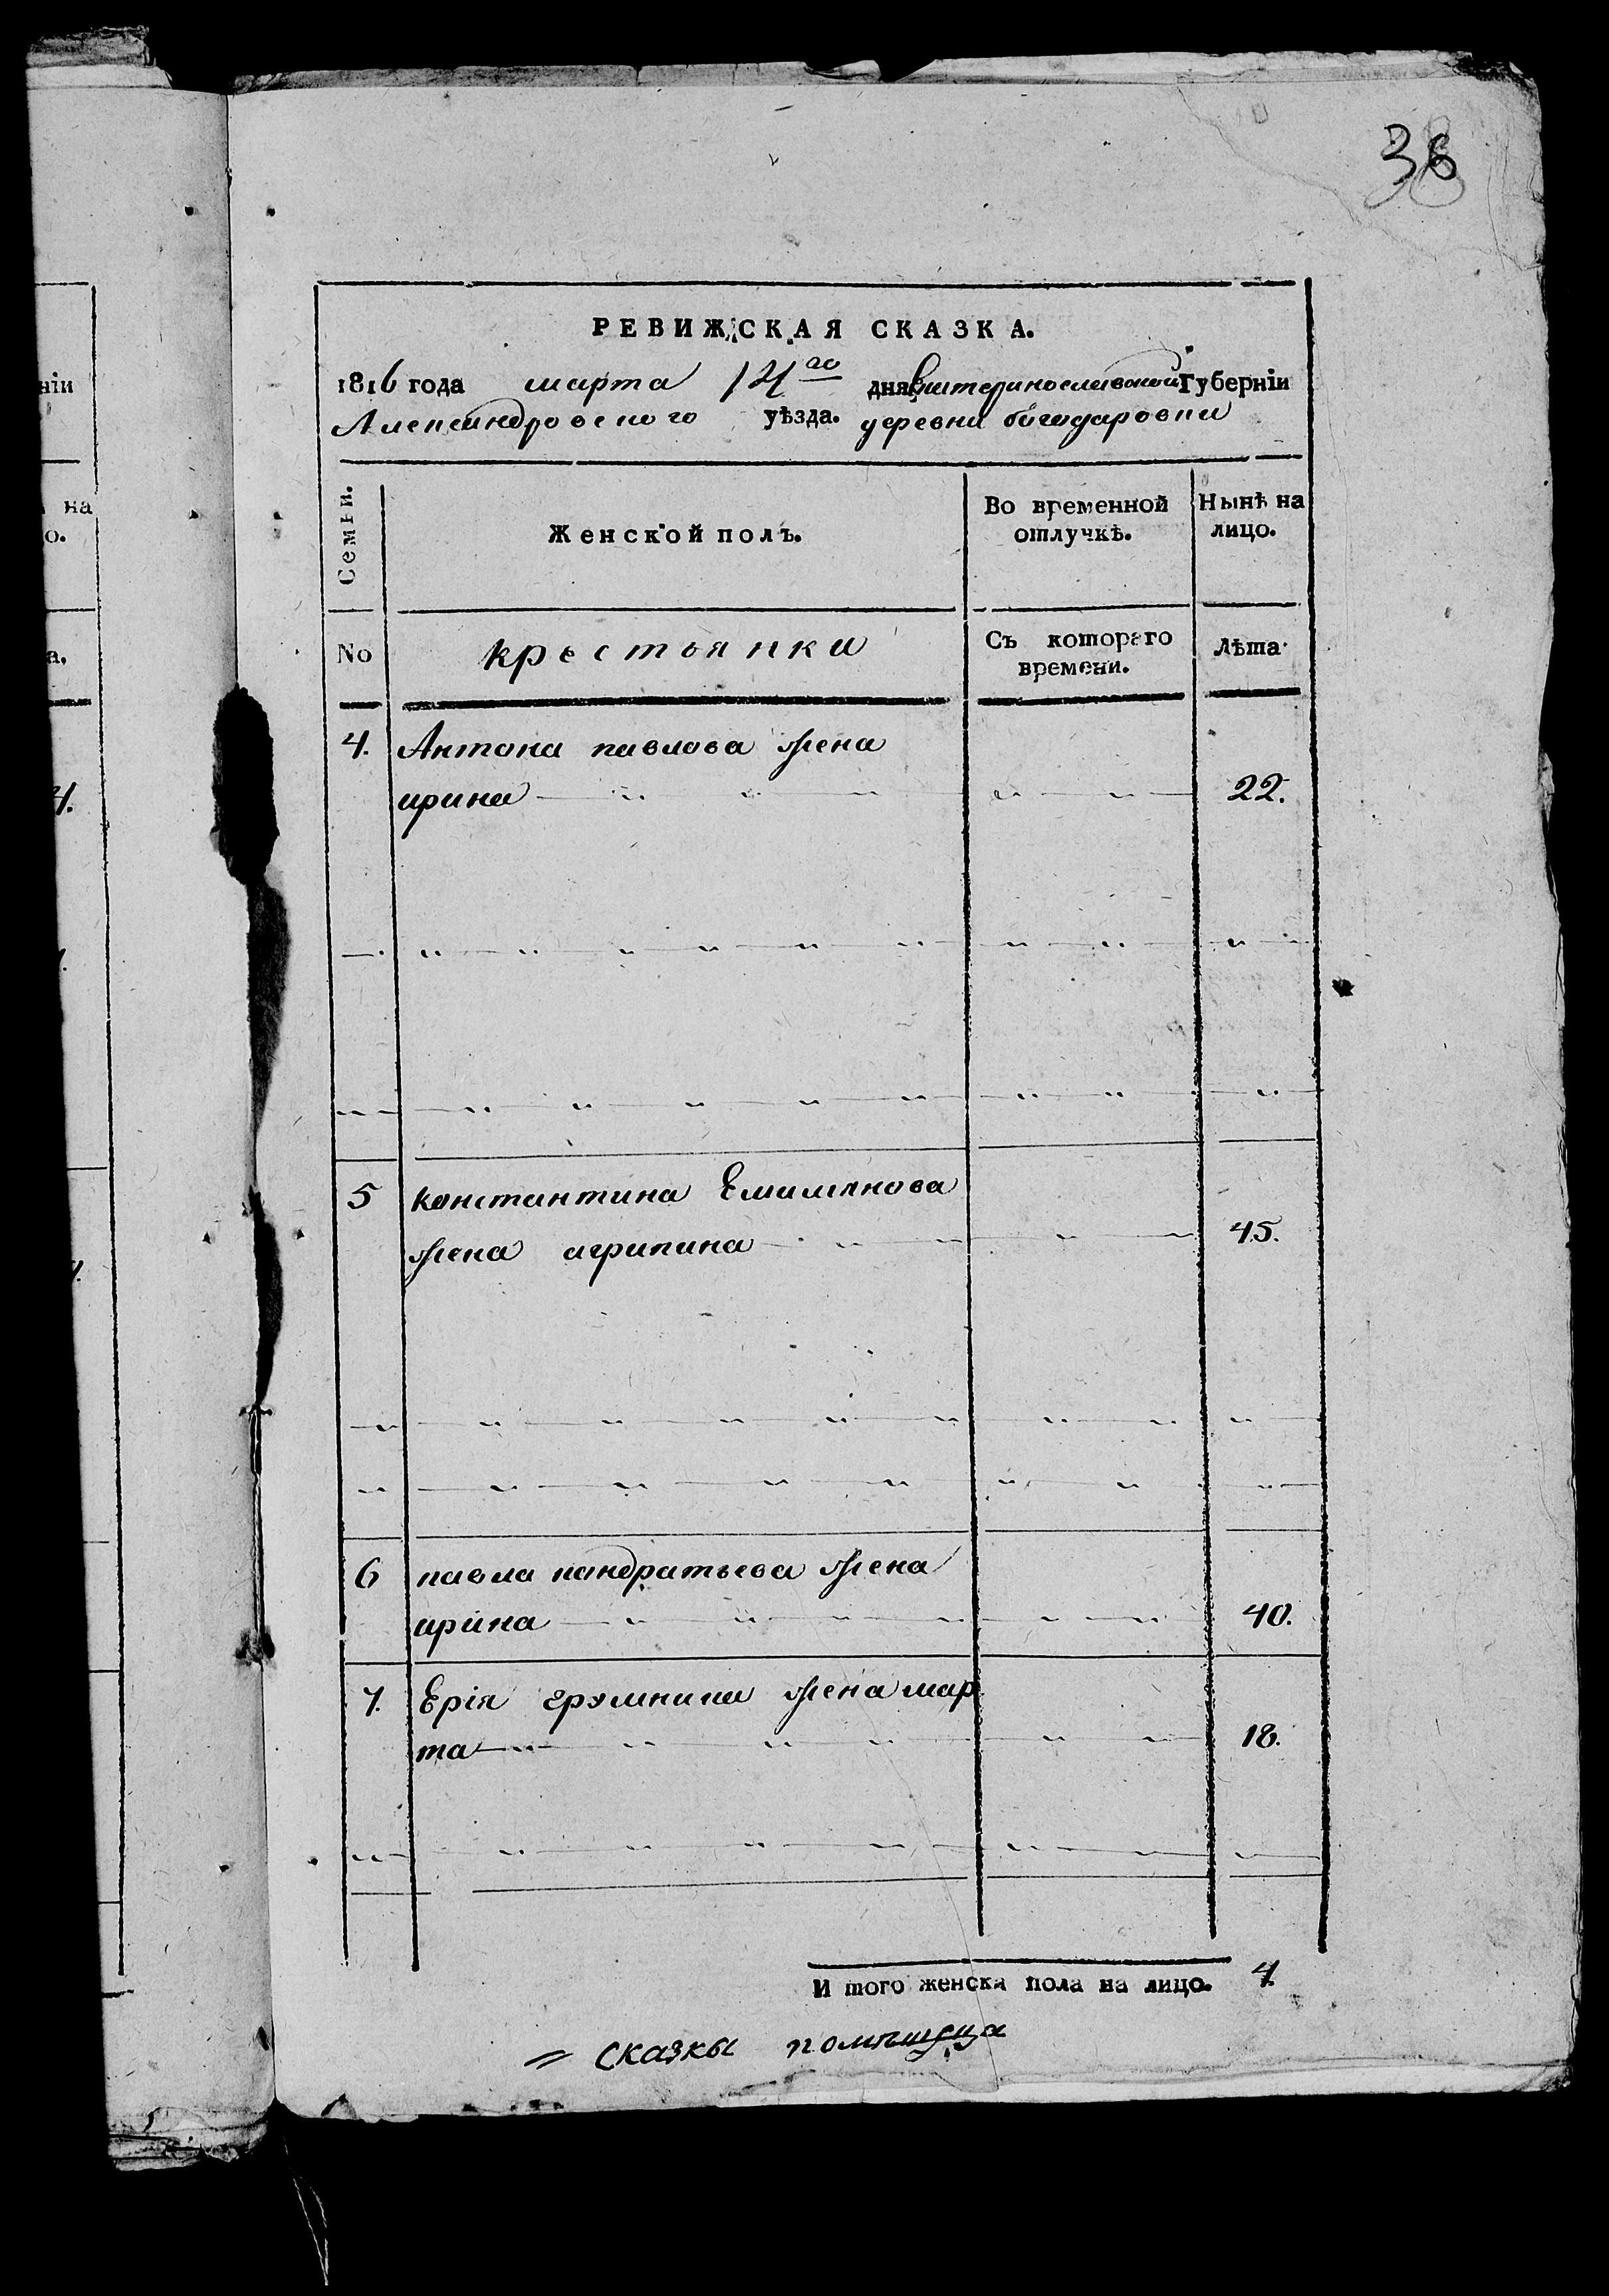 36
РЕВИЖСКАЯ СКАЗКА.
1816 года марта 14го дня Екатеринославской Губерніи
Александровского уѣзда. деревни богодаровки
Семьи.
Женской полъ.
Во временной отлучкѣ.
Нынѣ на лицо.
No
крестьянки
Съ котораго времени.
Лѣта.
4. Антона павлова жена
ирина 22.
5 константина Емилянова
жена агрипина 45.
6 павла кандратьева жена
ирина 40.
7. жена мар
та 18.
И того женска пола на лицо. 4
сказки помѣщица
ніи
на
о.
а.
4.